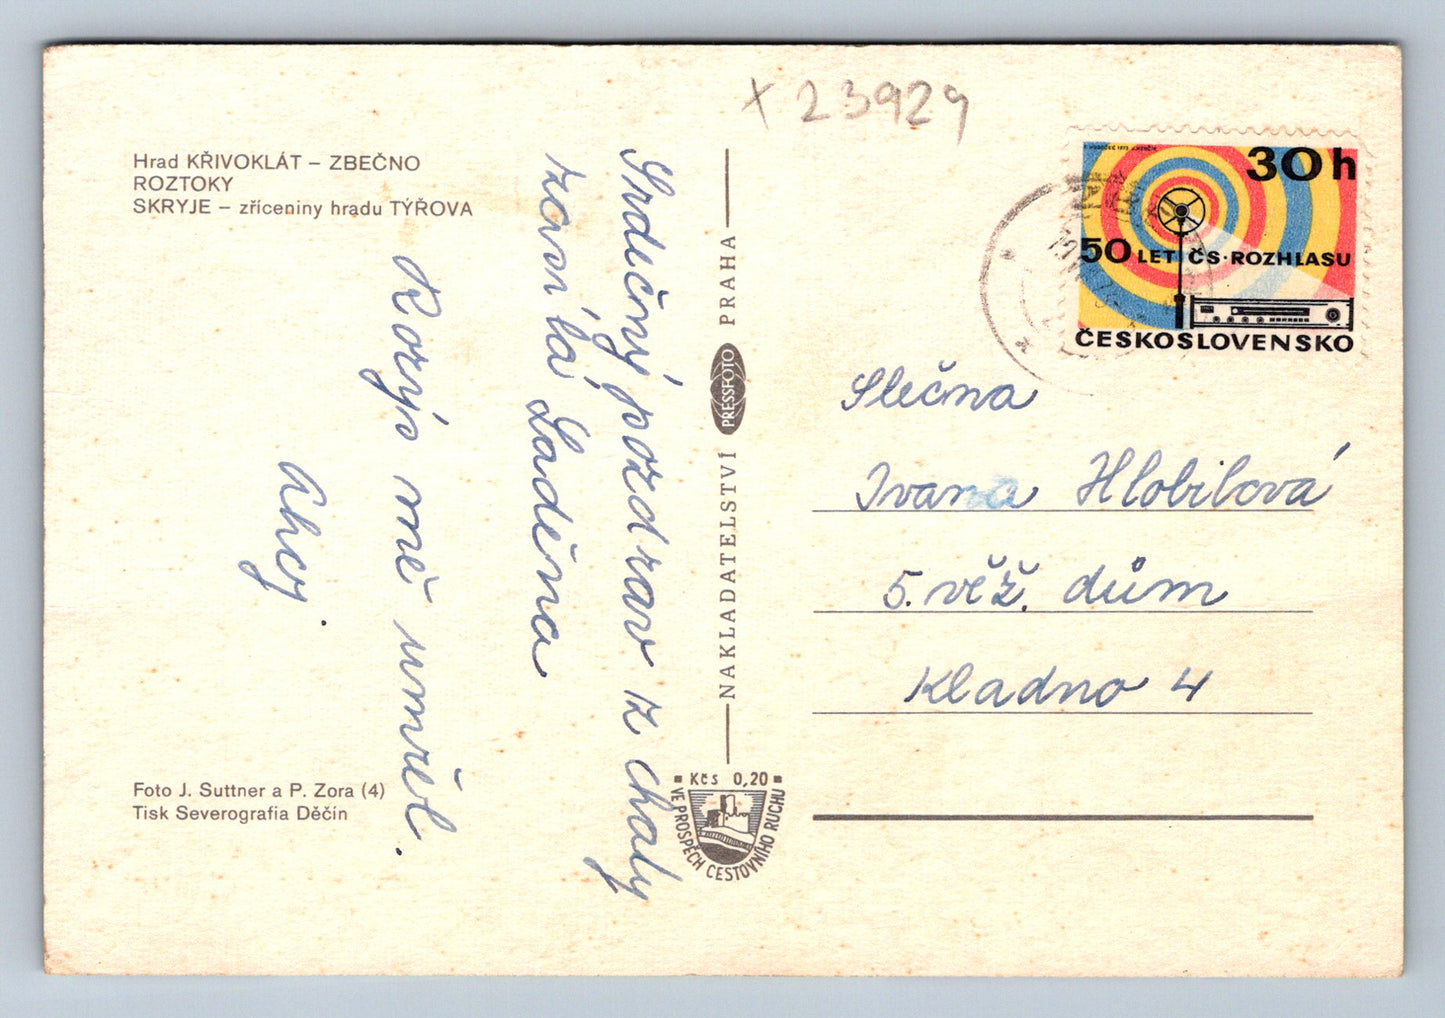 x 23929
Hrad KŘIVOKLÁT – ZBEČNO
ROZTOKY
SKRYJE – zříceniny hradu TÝŘOVA
Srdečný pozdrav z chaty
Laděna
mě umřel.
Ahoj
Foto J. Suttner a P. Zora (4)
Tisk Severografia Děčín
NAKLADATELSTVÍ PRESSFOTO PRAHA
Kčs 0,20
VE PROSPĚCH CESTOVNÍHO RUCHU
30h
50 LET ČS·ROZHLASU
ČESKOSLOVENSKO
Slečna
Ivana Hlobilová
5. věž. dům
Kladno 4